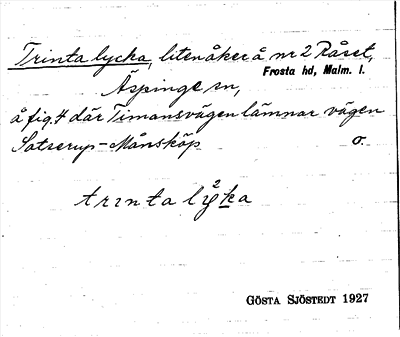 Trinta lycka, liten åker å nr 2 Råset,
Frosta hd, Malm. l.
Äspinge sn,
å fig. 4 där Timansvägen lämnar vägen
Satserup-Månsköp o.
trinta lyka
GÖSTA SJÖSTEDT 1927